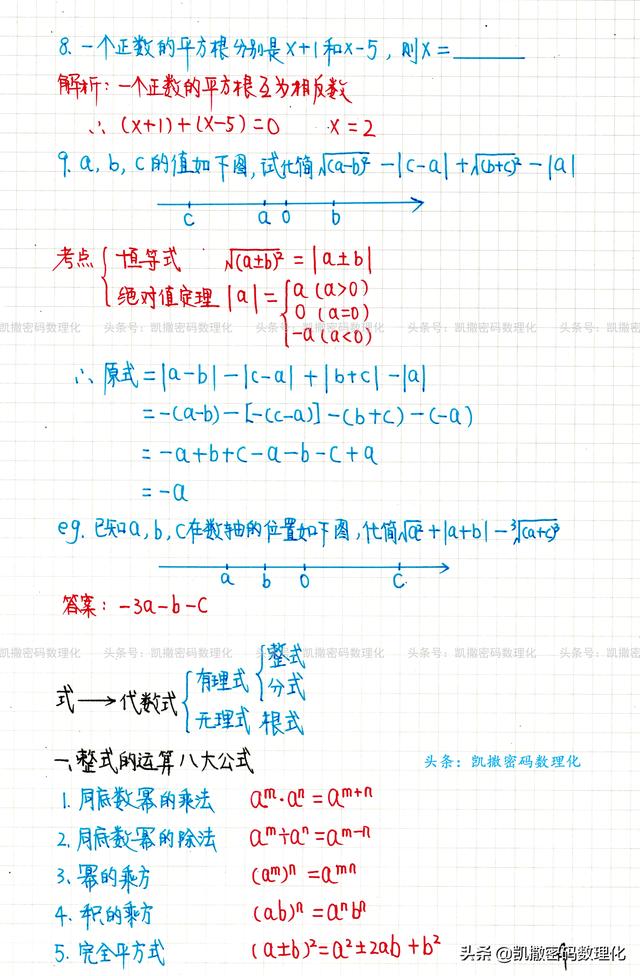 8. 一个正数的平方根分别是x+1和x-5，则x=______
解析：一个正数的平方根互为相反数
∴ (x+1)+(x-5)=0 x=2
9. a, b, c的值如下图，试化简√(a-b)² - |c-a| + √(b+c)² - |a|
c a 0 b
考点 { 恒等式 √(a±b)² = |a±b|
绝对值定理 |a| = { a (a>0)
0 (a=0)
-a (a<0)
头条号：凯撒密码数理化 头条号：凯撒密码数理化 头条号：凯撒密码数理化 头条号：凯撒密码数理化
∴ 原式 = |a-b| - |c-a| + |b+c| - |a|
= -(a-b) - [-(c-a)] - (b+c) - (-a)
= -a+b+c-a-b-c+a
= -a
eg. 已知a, b, c在数轴的位置如下图，化简√a² + |a+b| - ³√(a+c)³
a b 0 c
答案：-3a-b-c
头条号：凯撒密码数理化 头条号：凯撒密码数理化 头条号：凯撒密码数理化 头条号：凯撒密码数理化
式 → 代数式 { 有理式 { 整式
分式
无理式 根式
一、整式的运算八大公式
头条：凯撒密码数理化
1. 同底数幂的乘法 aᵐ·aⁿ=aᵐ⁺ⁿ
2. 同底数幂的除法 aᵐ÷aⁿ=aᵐ⁻ⁿ
3. 幂的乘方 (aᵐ)ⁿ=aᵐⁿ
4. 积的乘方 (ab)ⁿ=aⁿbⁿ
5. 完全平方式 (a±b)²=a²±2ab+b²
头条 @凯撒密码数理化